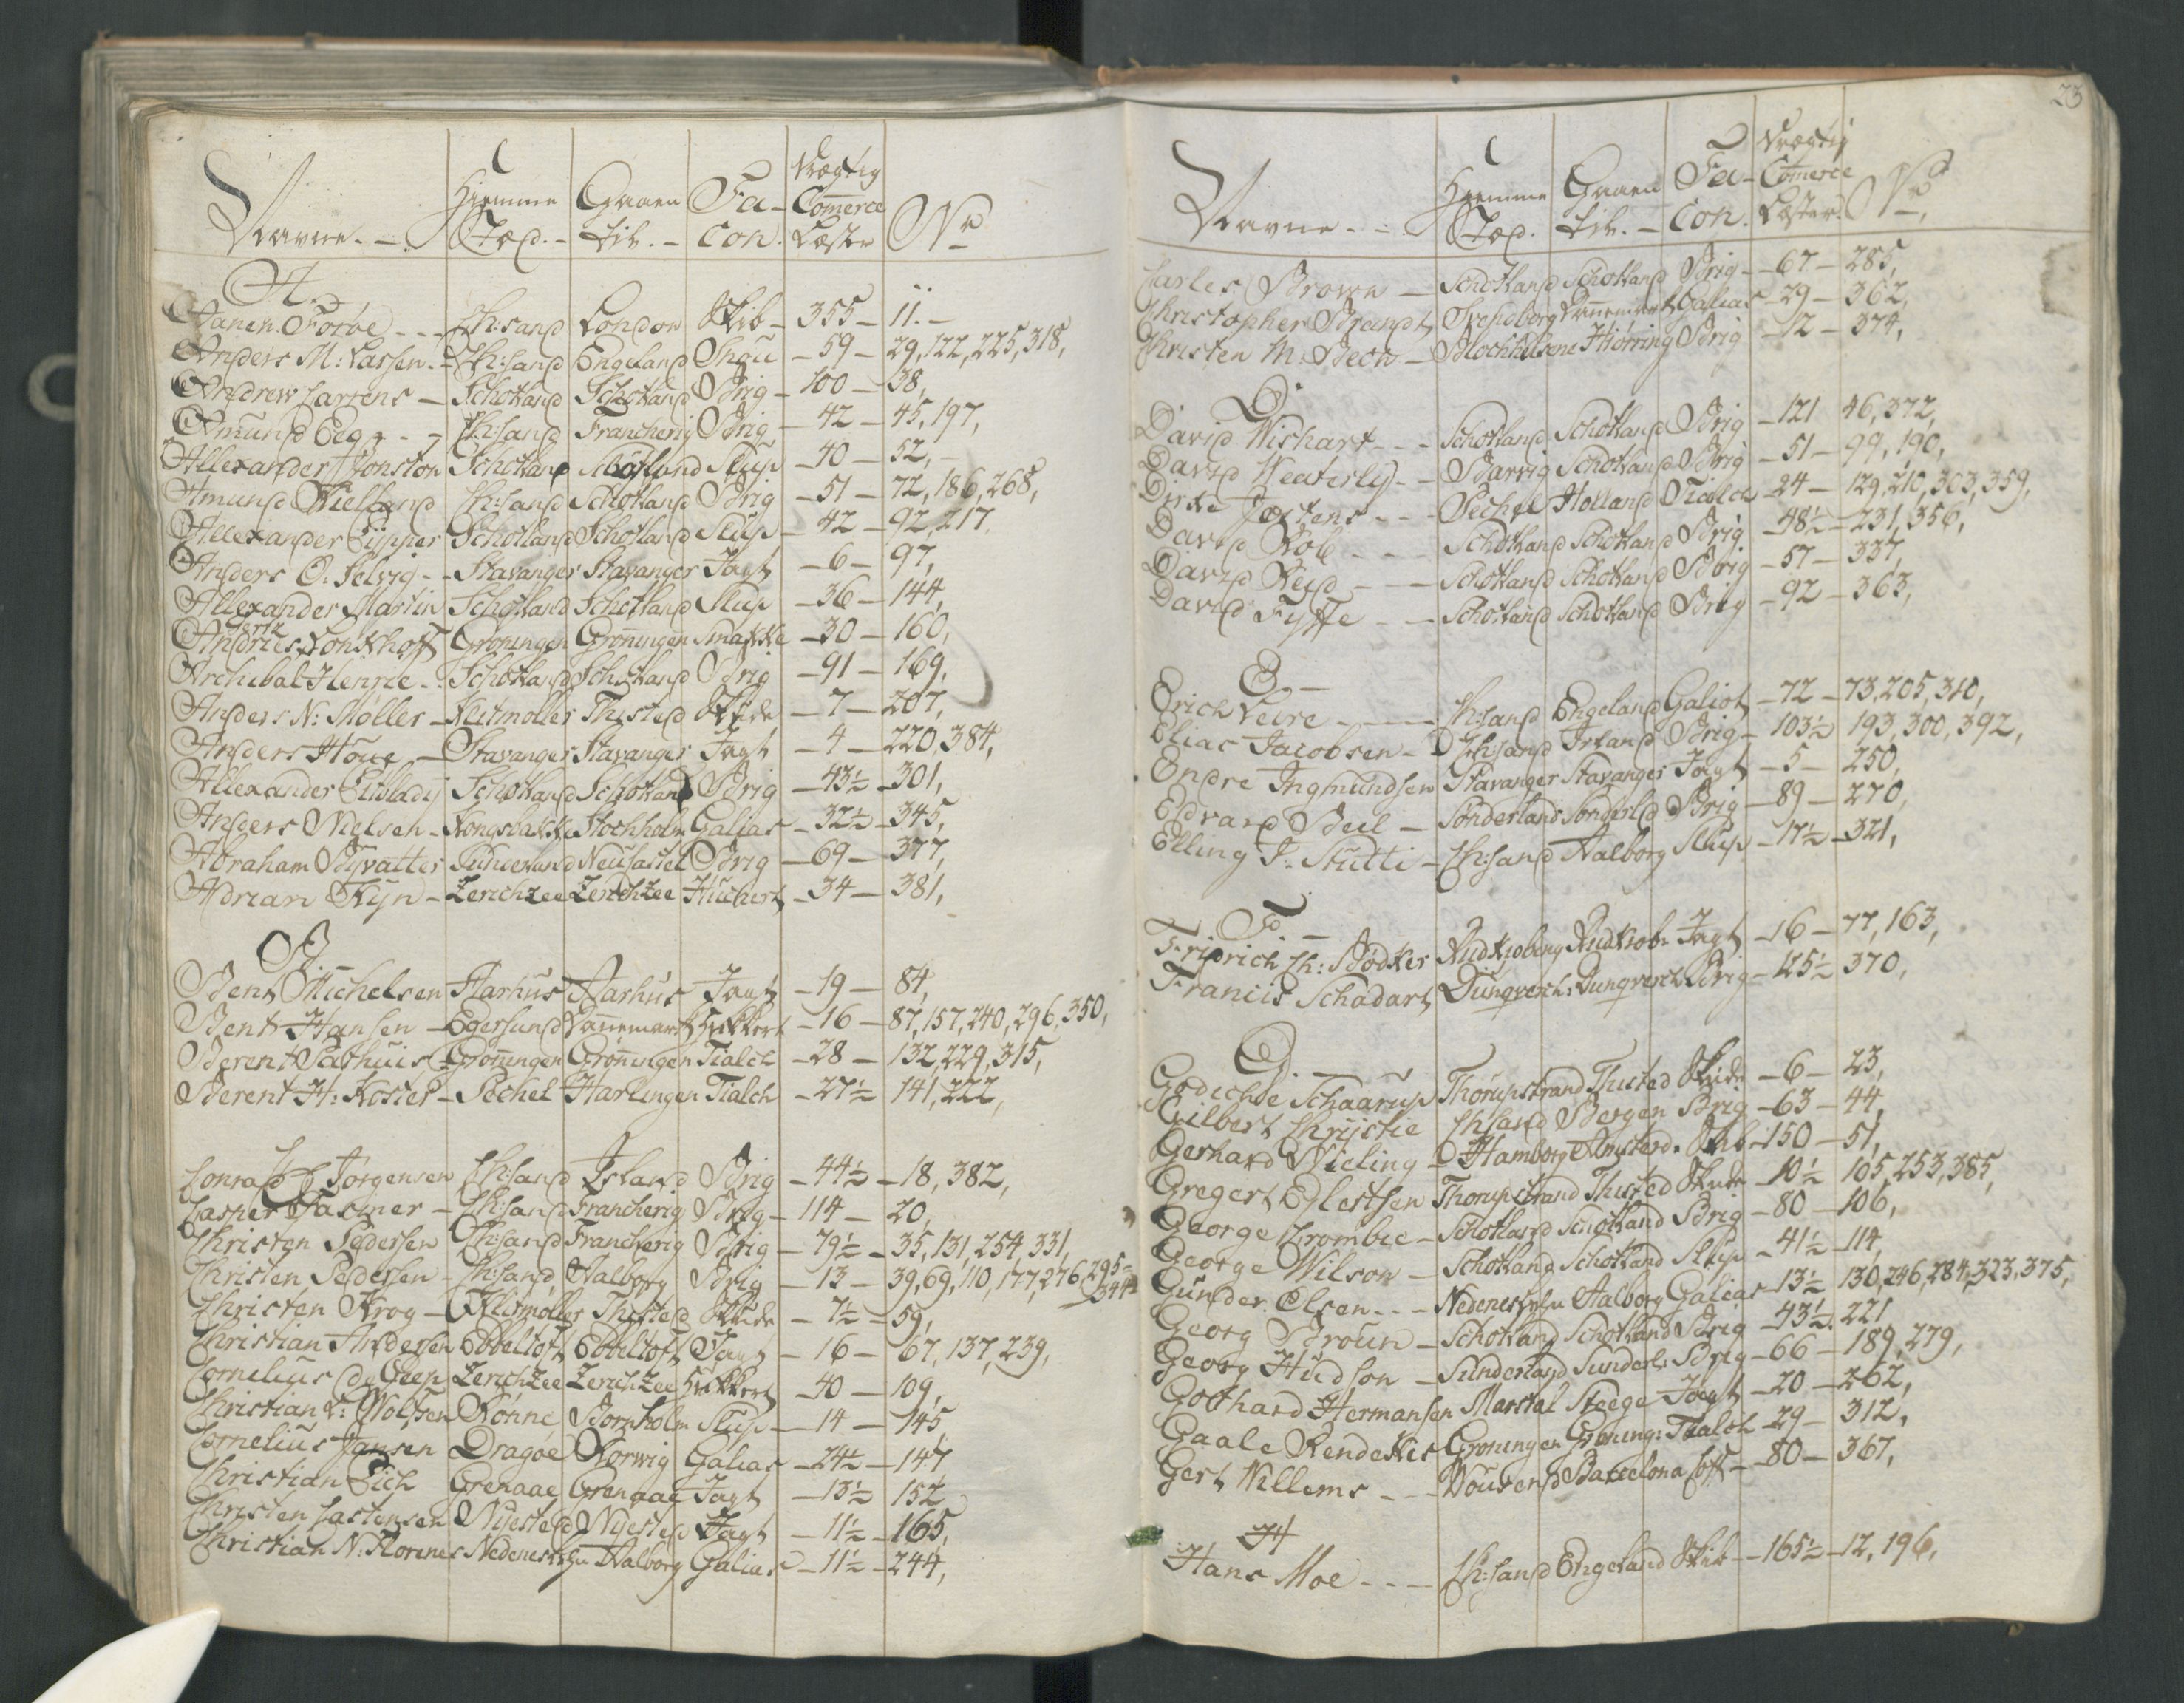 Navne. Hiemme Stæd. Graaen til. Facon. Drægtig Comerce Læster No
A.
Aanen Foske Ch:sand London Skib 355 11.
Anders M: Lassen. Ch:sand Engeland Snau 59 29, 122, 225, 318,
Andrew Larsens Schotland Schotland Brig 100 38,
Amund Eeg Ch:sand Francherig Brig 42 45, 197,
Allexander Jonston Schotland Schotland Slup 40 52,
Amund Kielland Ch:sand Schotland Brig 51 72, 186, 268,
Allexander Schotland Schotland Slup 42 92, 217.
Anders O. Selvig Stavanger Stavanger Jagt 6 97,
Allexander Martin Schotland Schotland Slup 36 144,
Andries Lonskhoff Groningen Groningen Smakke 30 160,
Archibal Henrie Schotland Schotland Brig 91 169,
Anders N: Møller Klitmøller Thisted Skude 7 207,
Anders Houe Stavanger Stavanger Jagt 4 220, 384,
Allexander Schotland Schotland Brig 43½ 301,
Anders Nielsen Kongsbakke Stochholm Galias 32½ 345,
Abraham Sunderland Brig 69 377,
Adrian Kijn Zerichzee Zerichzee Huchert 34 381,
B.
Bent Michelsen Aarhus Aarhus Jagt 19 84,
Bent Hansen Egersund Dannemark Hukkert 16 87, 157, 240, 296, 350,
Berent Pathuis Gronningen Gronningen Tialch 28 132, 229, 315,
Berent H: Koster Pechel Harlingen Tialch 27½ 141, 222,
C
Conrad Jørgensen Ch:sand Island Brig 44½ 18, 382,
Casper Fasmer Ch:sand Francherig Brig 114 20,
Christen Pedersen Ch:sand Francherig Brig 79½ 35, 131, 254, 331,
Christen Pedersen Ch:sand Aalborg Brig 13 39, 69, 110, 177, 276, 295
344
Christen Krog Klitmøller Thisted Skude 7½ 59,
Christian Andersen Ebbeltoft Ebbeltoft Jagt 16 67, 137, 239,
Cornelius de Zerichzee Zerichzee Hukkert 40 109,
Christian L: Wolfsen Rønne Bornholm Slup 14 145,
Cornelius Jansen Dragøe Rorwig Galias 24½ 147
Christian Eich Grenaae Grenaae Jagt 13½ 152
Christen Castensen Nijested Nijested Jagt 11½ 165,
Christian N: Florenes Aalborg Galias 11½ 244,
23
Navne. Hiemme Stæd. Graaen til. Facon. Drægtig Comerce Læster. No
Carles Brown Schotland Schotland Brig 67 285,
Christopher Brandt Svendborg Dannemark Galias 29 362,
Christen M: Bech Blochhusene Hiørring Brig 12 374,
D
David Wishart Schotland Schotland Brig 121 46, 372,
David Weaterly Barvig Schotland Brig 51 99, 190,
Dirke Jostens Pechel Holland Tialch 24 129, 210, 303, 359,
David Schotland Schotland Brig 48½ 231, 356,
David Reid Schotland Schotland Brig 57 337,
David Fyffe Schotland Schotland Brig 92 363,
E
Erich Veire Ch:sand Engeland Galiot 72 73, 205, 310,
Elias Jacobsen Ch:sand Irland Brig 103½ 193, 300, 392,
Endre Ingmundsen Stavanger Stavanger Jagt 5 250,
Edvard Beil Sonderland Sonderld Brig 89 270,
Elling J. Stutti Ch:sand Aalborg Slup 17½ 321,
F.
Fridrich Ch: Bødker Rudkiøbing Rudkiob: Jagt 16 77, 163,
Francis Schadart Dunqverch Dunqverch Brig 125½ 370,
G.
Godichse Schaarup Thorupstrand Thisted Skude 6 23,
Gilbert Christie Ch:sand Bergen Brig 63 44,
Gerhard Wieling Hamborg Amsterd. Skib 150 51,
Gregert Eglestsen Thorupstrand Thisted Skude 10½ 105, 253, 385,
George Crombie Schotland Schotland Brig 80 106,
George Wilson Schotland Schotland Slup 41½ 114,
Gunder Olsen Aalborg Galias 13½ 130, 246, 284, 323, 375,
Georg Broun Schotland Schotland Brig 43½ 221
Georg Hudson Sunderland Sunderl: Brig 66 189, 279,
Gothard Hermansen Marstal Steege Jagt 20 262,
Gaale Rendekes Groningen Groning: Tialch 29 312,
Gert Willems Barcelona 80 367,
H
Hans Moe Ch:sand Engeland Skib 165½ 12, 196,